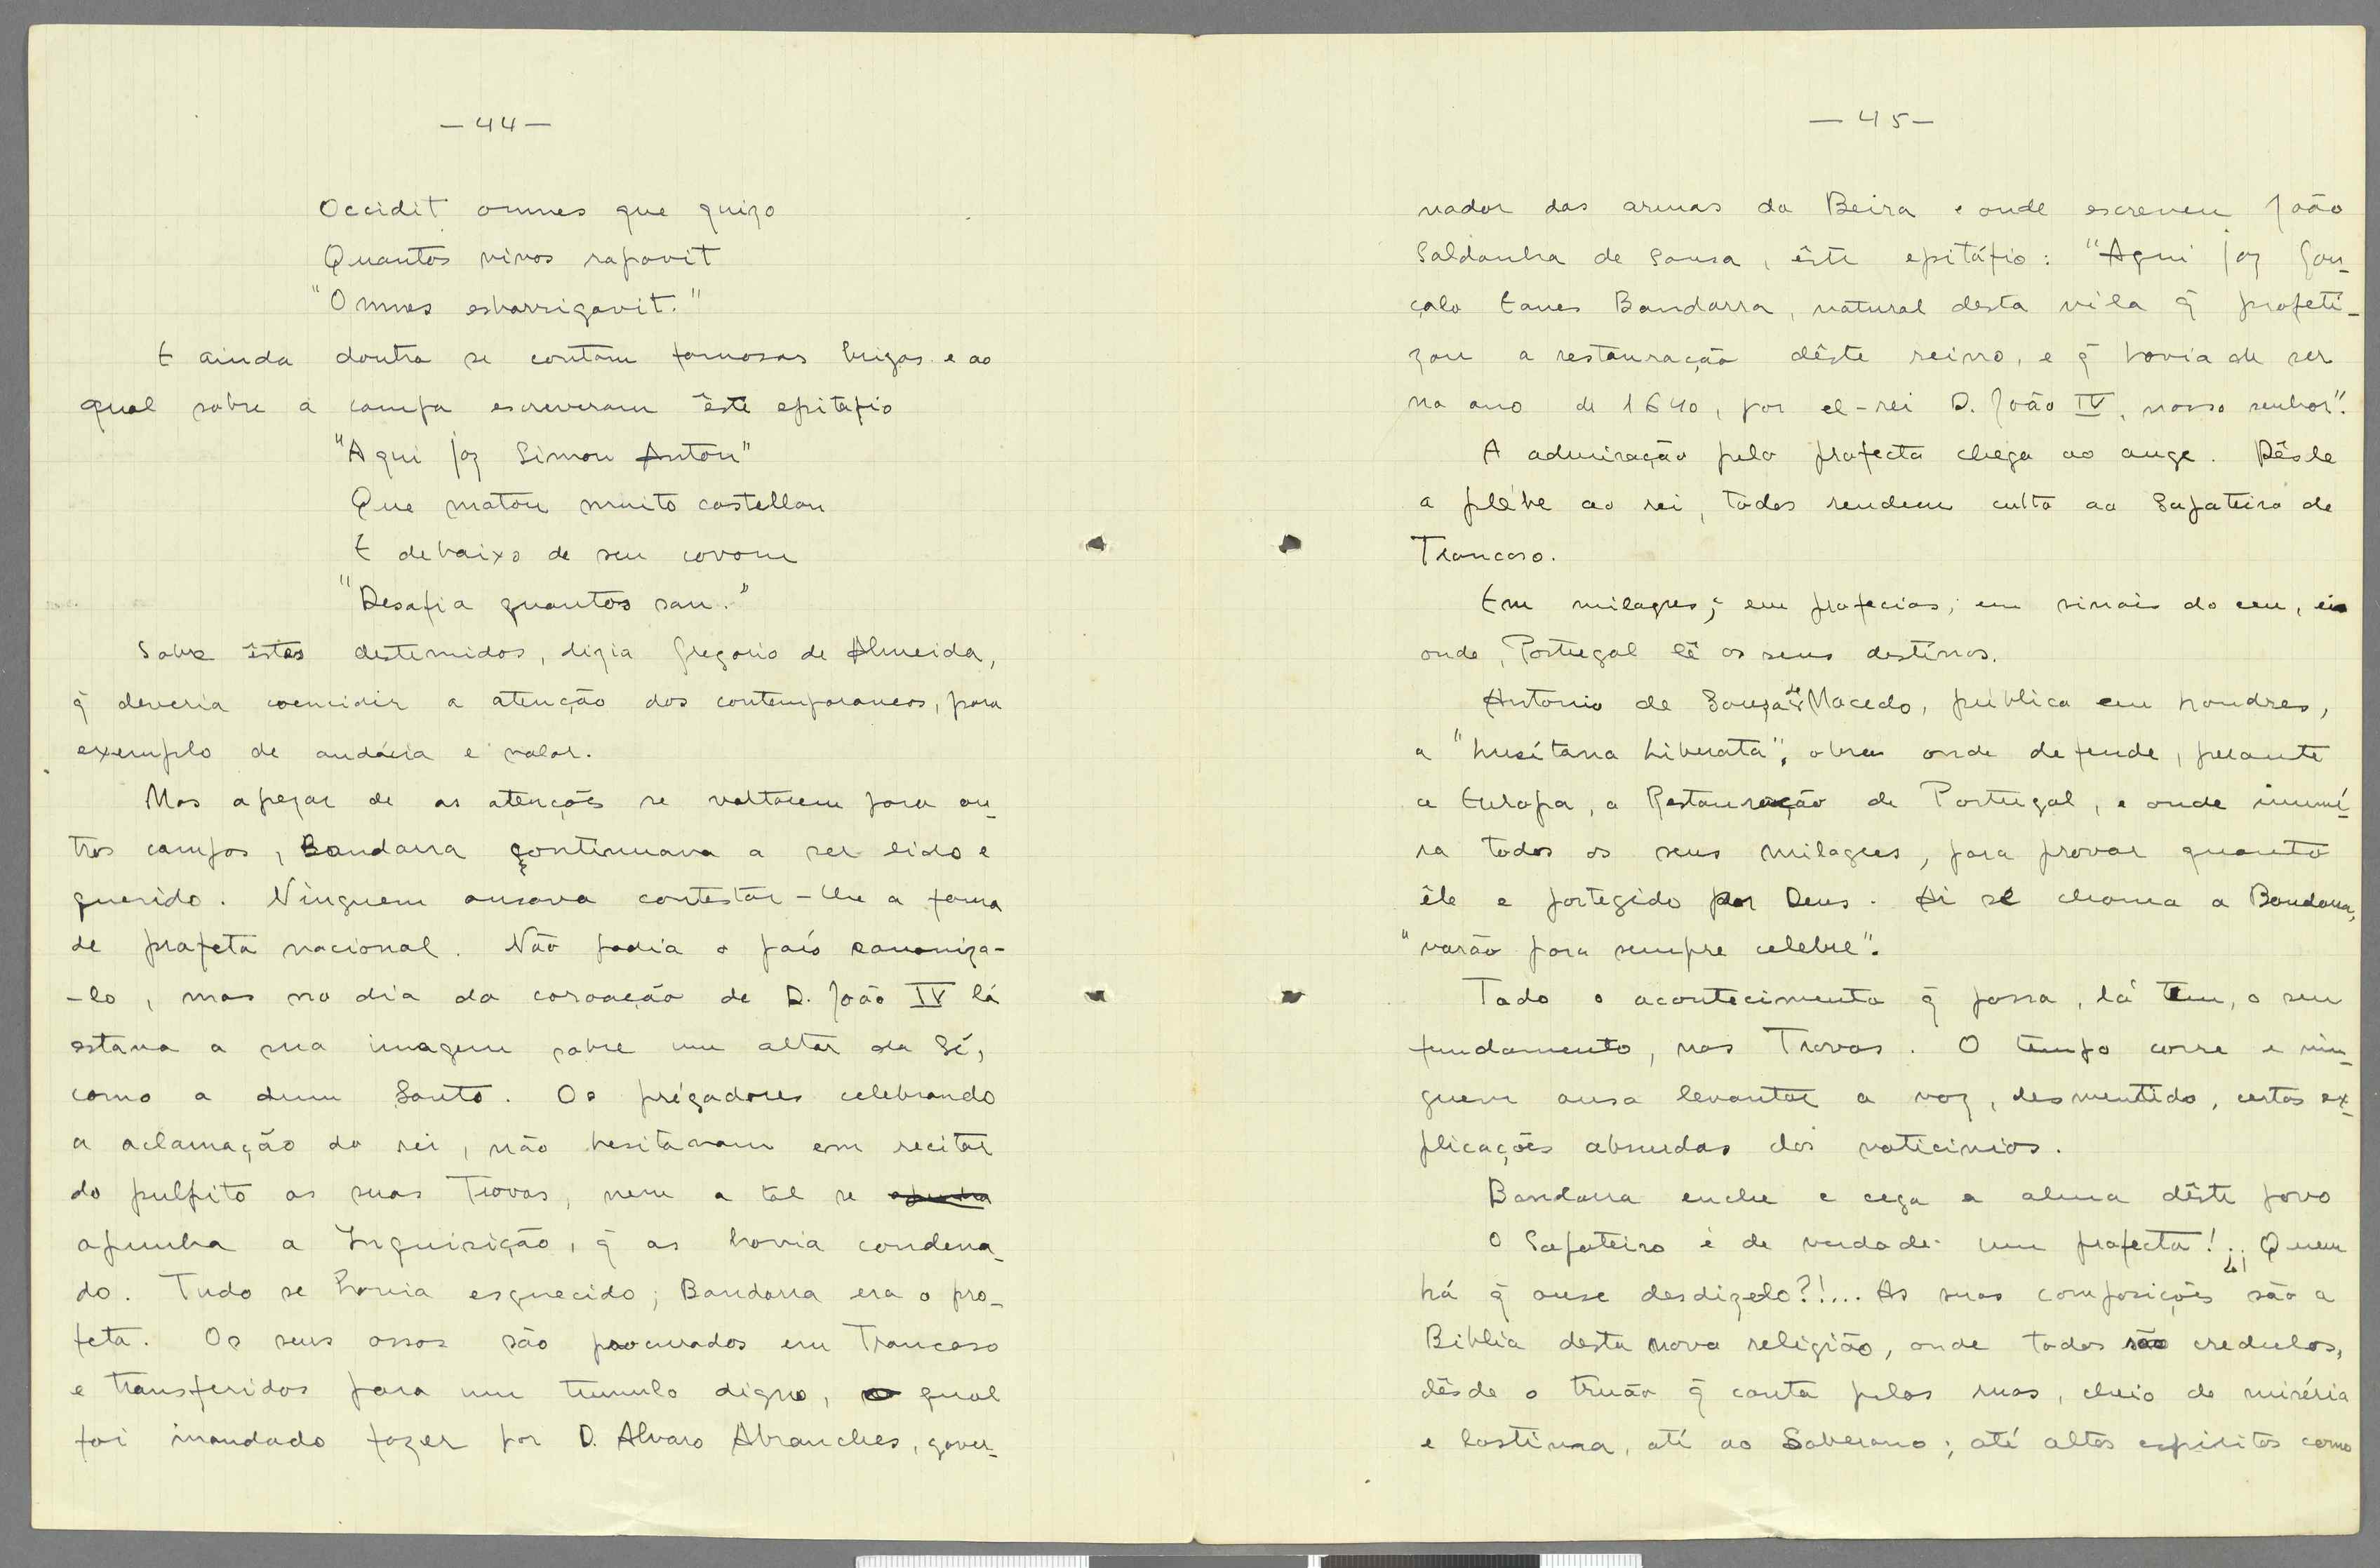 — 44 —
Occidit omnes que quizo
Quantos vivos rapavit
"Omnes esbarrigavit."
E ainda doutro se contam famosas brigas e ao
qual sobre a campa escreveram êste epitafio
"Aqui jaz Simon Anton"
Que matou muito castellan
E debaixo de seu covom
"Desafia quantos san."
Sobre êstes destemidos, dizia Gregorio de Almeida,
q̃ deveria coencidir a atenção dos contemporaneos, para
exemplo de audácia e valor.
Mas apezar de as atenções se voltarem para ou-
tros campos, Bandarra continuava a ser lido e
querido. Ninguem ousava contestar-lhe a fama
de profeta nacional. Não podia o país canoniza-
-lo, mas no dia da coroação de D. João IV lá
estava a sua imagem sobre um altar da Sé,
como a dum Santo. Os prégadores celebrando
a aclamação do rei, não hesitavam em recitar
do pulpito as suas Trovas, nem a tal se opunha
opunha a Inquisição, q̃ as havia condena-
do. Tudo se havia esquecido; Bandarra era o pro-
feta. Os seus ossos são procurados em Trancoso
e transferidos para um tumulo digno, o qual
foi mandado fazer por D. Alvaro Abranches, gover-
— 45 —
nador das armas da Beira e onde escreveu João
Saldanha de Sousa, êste epitáfio: "Aqui jaz Gon-
çalo Eanes Bandarra, natural desta vila q̃ profeti-
zou a restauração dêste reino, e q̃ havia de ser
no ano de 1640, por el-rei D. João IV, nosso senhor".
A admiração pelo profecta chega ao auge. Dêsde
a plébe ao rei, todos rendem culto ao Sapateiro de
Trancoso.
Em milagres; em profecias; em sinais do ceu, eis
onde, Portugal lê os seus destinos.
Antonio de Souza de Macedo, publica em Londres,
a "Lusitana Liberata", obra onde defende, perante
a Europa, a Restauração de Portugal, e onde inumé-
ra todos os seus milagres, para provar quanto
êle e portegido por Deus. Ai se chama a Bandarra,
"varão para sempre celebre".
Todo o acontecimento q̃ passa, lá tem, o seu
fundamento, nas Trovas. O tempo corre e nin-
guem ousa levantar a voz, desmentido, certas ex-
plicações absurdas dos vaticinios.
Bandarra enche e cega a alma dêste povo
O Sapateiro é de verdade um profecta!.. Quem
há q̃ ouse desdizelo?!... As suas composições são a
Biblia desta nova religião, onde todos são credulos,
dêsde o truão q̃ canta pelas ruas, cheio de miséria
e lastima, até ao Soberano; até altos espiritos como